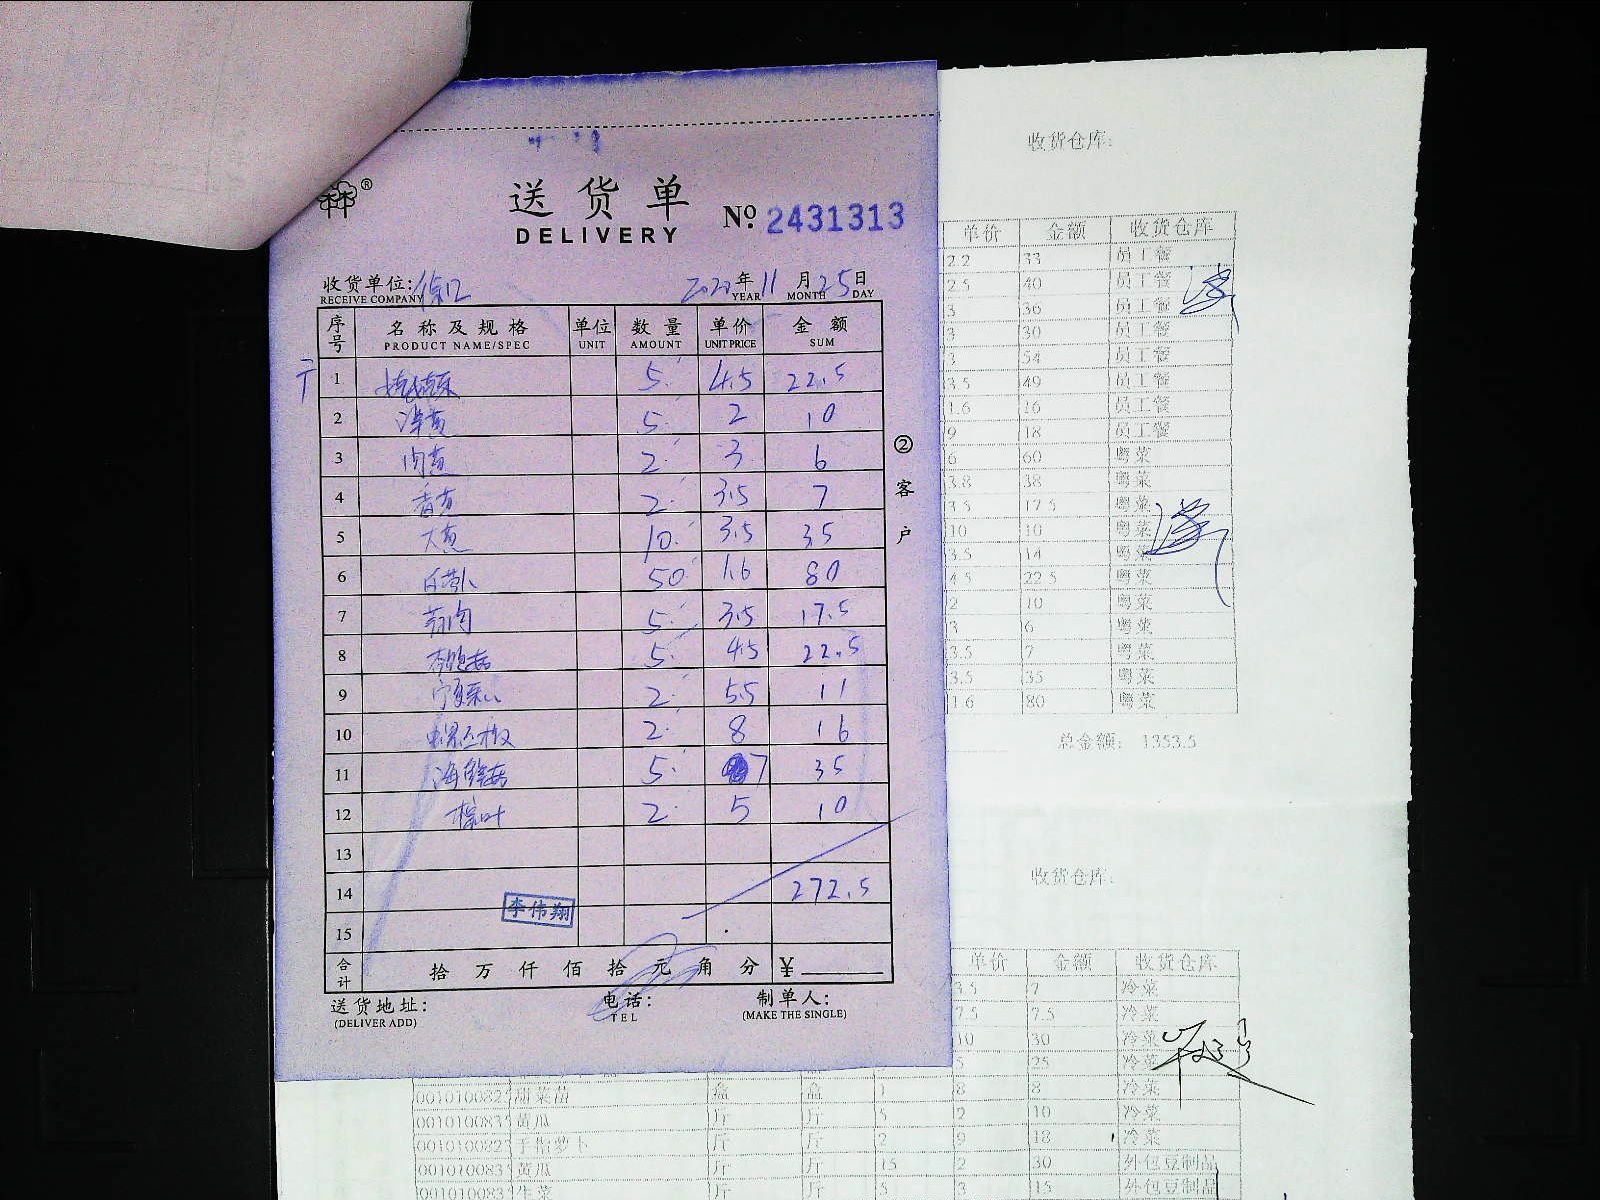 送货单
DELIVERY
№ 2431313
收货单位:
RECEIVE COMPANY
2020年11月25日
YEAR MONTH DAY
序号 名称及规格 单位 数量 单价 金额
PRODUCT NAME/SPEC UNIT AMOUNT UNIT PRICE SUM
1 5 4.5 22.5
2 洋葱 5 2 10
3 肉葱 2 3 6
4 香芹 2 3.5 7
5 大葱 10 3.5 35
6 50 1.6 80
7 5 3.5 17.5
8 5 4.5 22.5
9 2 5.5 11
10 2 8 16
11 海鲜菇 5 7 35
12 粽叶 2 5 10
13
14 272.5
李伟翔
15
合计 拾万仟佰拾元角分 ¥
送货地址:
(DELIVER ADD)
电话:
TEL
制单人:
(MAKE THE SINGLE)
②客户
收货仓库:
单价 金额 收货仓库
2.2 33 员工餐
2.5 40 员工餐
3 36 员工餐
3 30 员工餐
3 54 员工餐
3.5 49 员工餐
1.6 16 员工餐
9 18 员工餐
6 60 粤菜
3.8 38 粤菜
3.5 17.5 粤菜
10 10 粤菜
3.5 14 粤菜
4.5 22.5 粤菜
2 10 粤菜
3 6 粤菜
3.5 7 粤菜
3.5 35 粤菜
1.6 80 粤菜
总金额: 1353.5
收货仓库:
单价 金额 收货仓库
3.5 7 冷菜
7.5 7.5 冷菜
10 30 冷菜
5 25 冷菜
甜菜苗 盒 盒 1 8 8 冷菜
黄瓜 斤 斤 5 2 10 冷菜
手指萝卜 斤 斤 2 9 18 冷菜
黄瓜 斤 斤 15 2 30 外包豆制品
生菜 斤 斤 5 3 15 外包豆制品